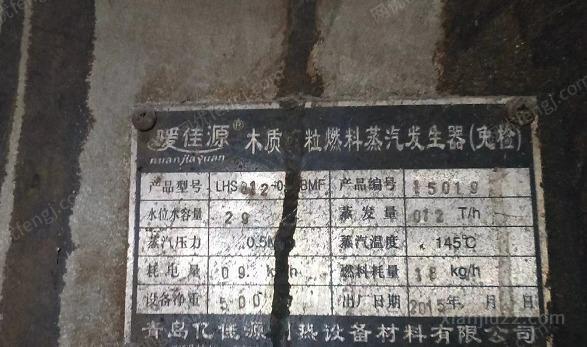 暖佳源® 木质 粒燃料蒸汽发生器(免检)
nuanjiayuan
产品型号 LHS 产品编号 15019
水位水容量 29 蒸发量 012 T/h
蒸汽压力 0.5M 蒸汽温度 145℃
耗电量 09 k /h 燃料耗量 18 kg/h
设备净重 500 出厂日期 2015年 月 日
青岛亿佳源 热设备材料有限公司